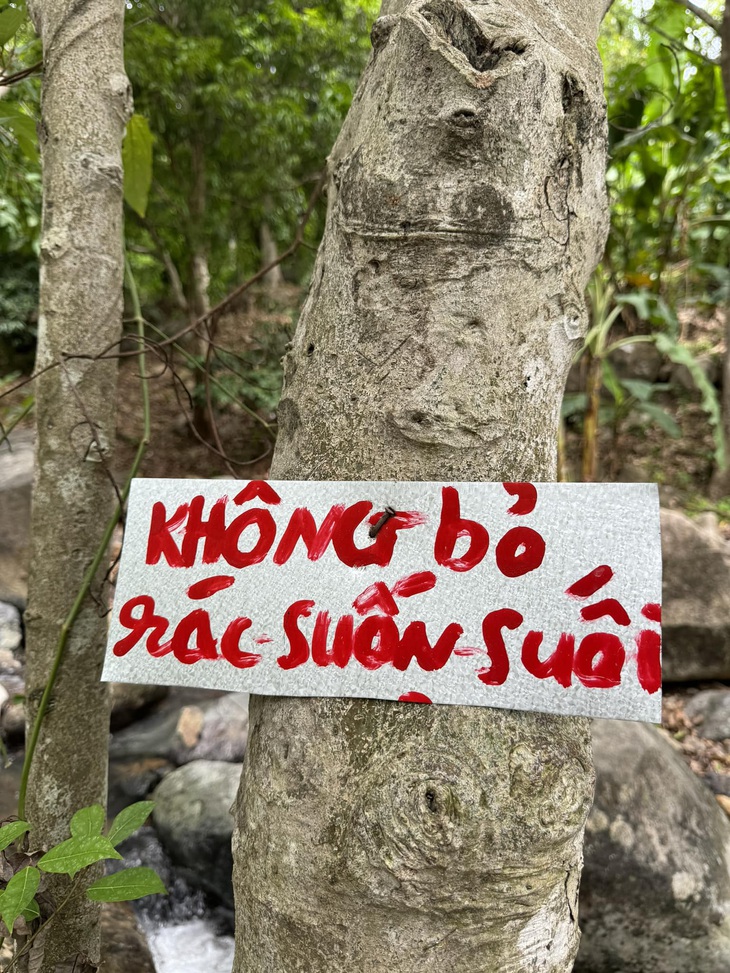 KHÔNG bỏ
rác suốn suối